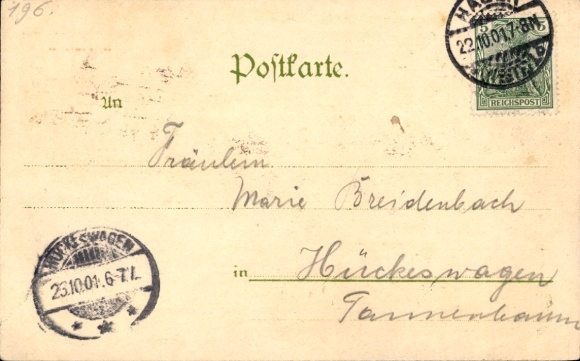 196.
HAGEN
22.10.01.7-8N.
(WESTF.)
REICHSPOST
Postkarte.
An
Fräulein
Marie Breidenbach
in Hückeswagen
Tannenbaum
HÜCKESWAGEN
23.10.01.6-7V.